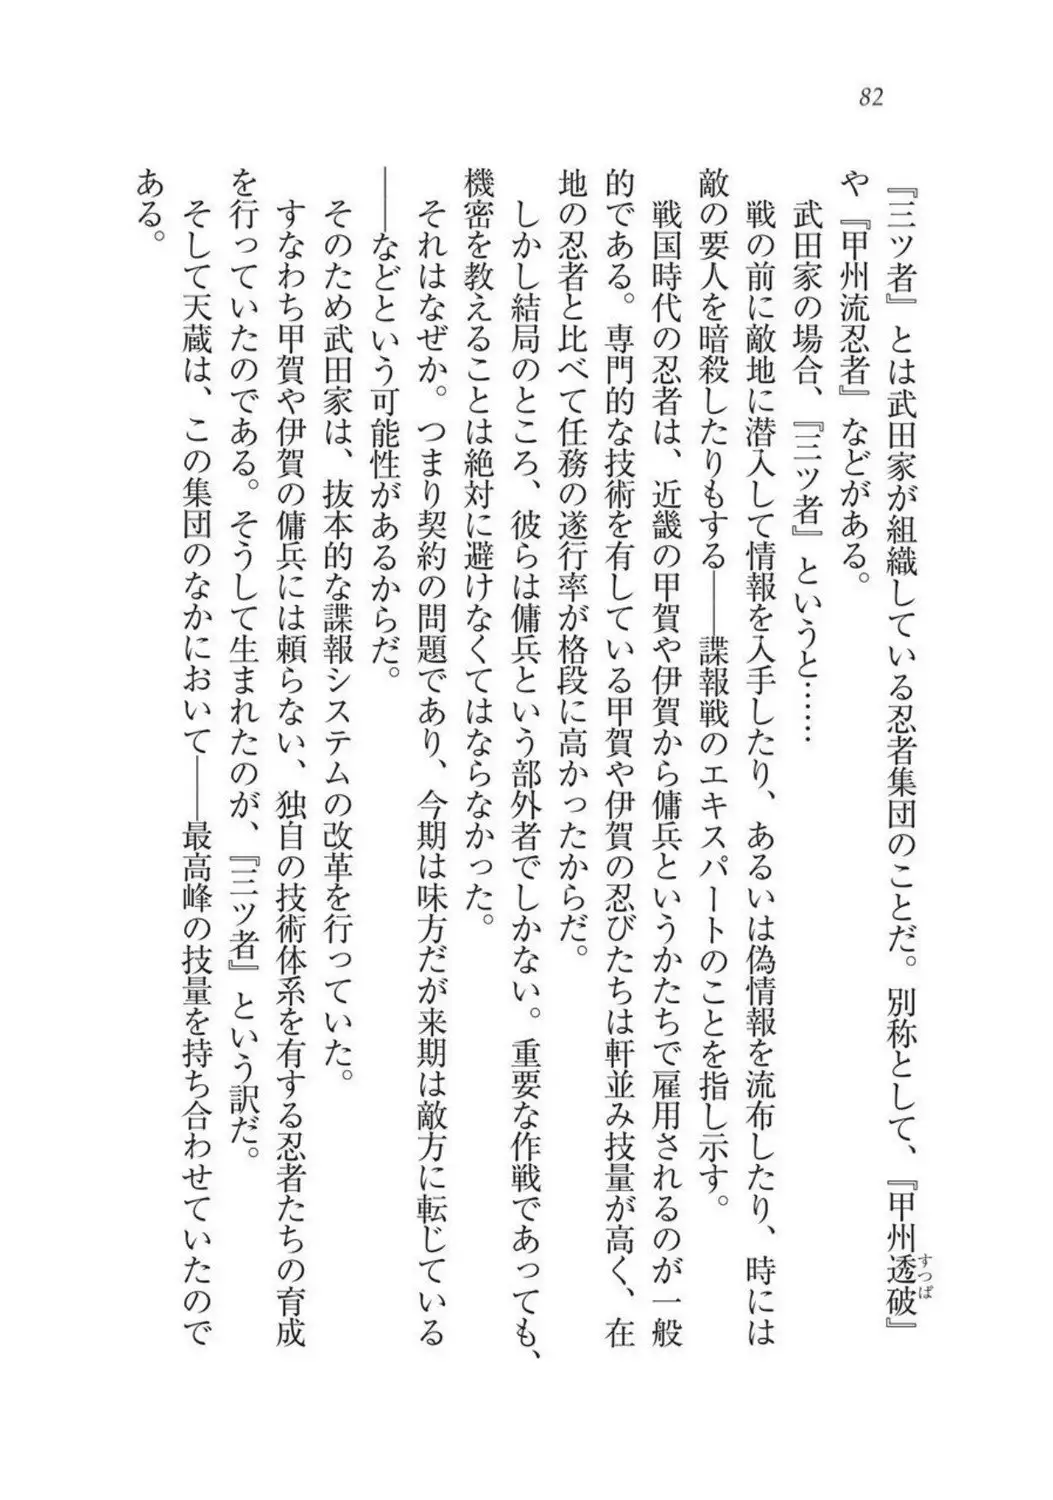 82
『三ツ者』とは武田家が組織している忍者集団のことだ。別称として、『甲州透破』
すっぱ
や『甲州流忍者』などがある。
武田家の場合、『三ツ者』というと……
戦の前に敵地に潜入して情報を入手したり、あるいは偽情報を流布したり、時には
敵の要人を暗殺したりもする――諜報戦のエキスパートのことを指し示す。
戦国時代の忍者は、近畿の甲賀や伊賀から傭兵というかたちで雇用されるのが一般
的である。専門的な技術を有している甲賀や伊賀の忍びたちは軒並み技量が高く、在
地の忍者と比べて任務の遂行率が格段に高かったからだ。
しかし結局のところ、彼らは傭兵という部外者でしかない。重要な作戦であっても、
機密を教えることは絶対に避けなくてはならなかった。
それはなぜか。つまり契約の問題であり、今期は味方だが来期は敵方に転じている
――などという可能性があるからだ。
そのため武田家は、抜本的な諜報システムの改革を行っていた。
すなわち甲賀や伊賀の傭兵には頼らない、独自の技術体系を有する忍者たちの育成
を行っていたのである。そうして生まれたのが、『三ツ者』という訳だ。
そして天蔵は、この集団のなかにおいて――最高峰の技量を持ち合わせていたので
ある。